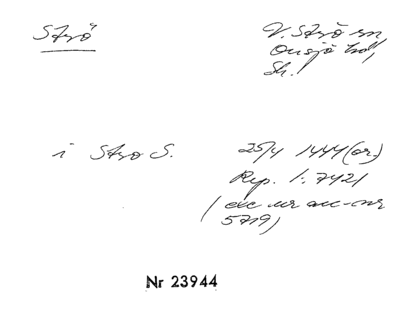 Strö
V. Strö sn,
Onsjö hd,
Sk.
i Stro S. 25/4 1444 (or.)
Rep. 1:7421
( acc-nr
5719)
Nr 23944